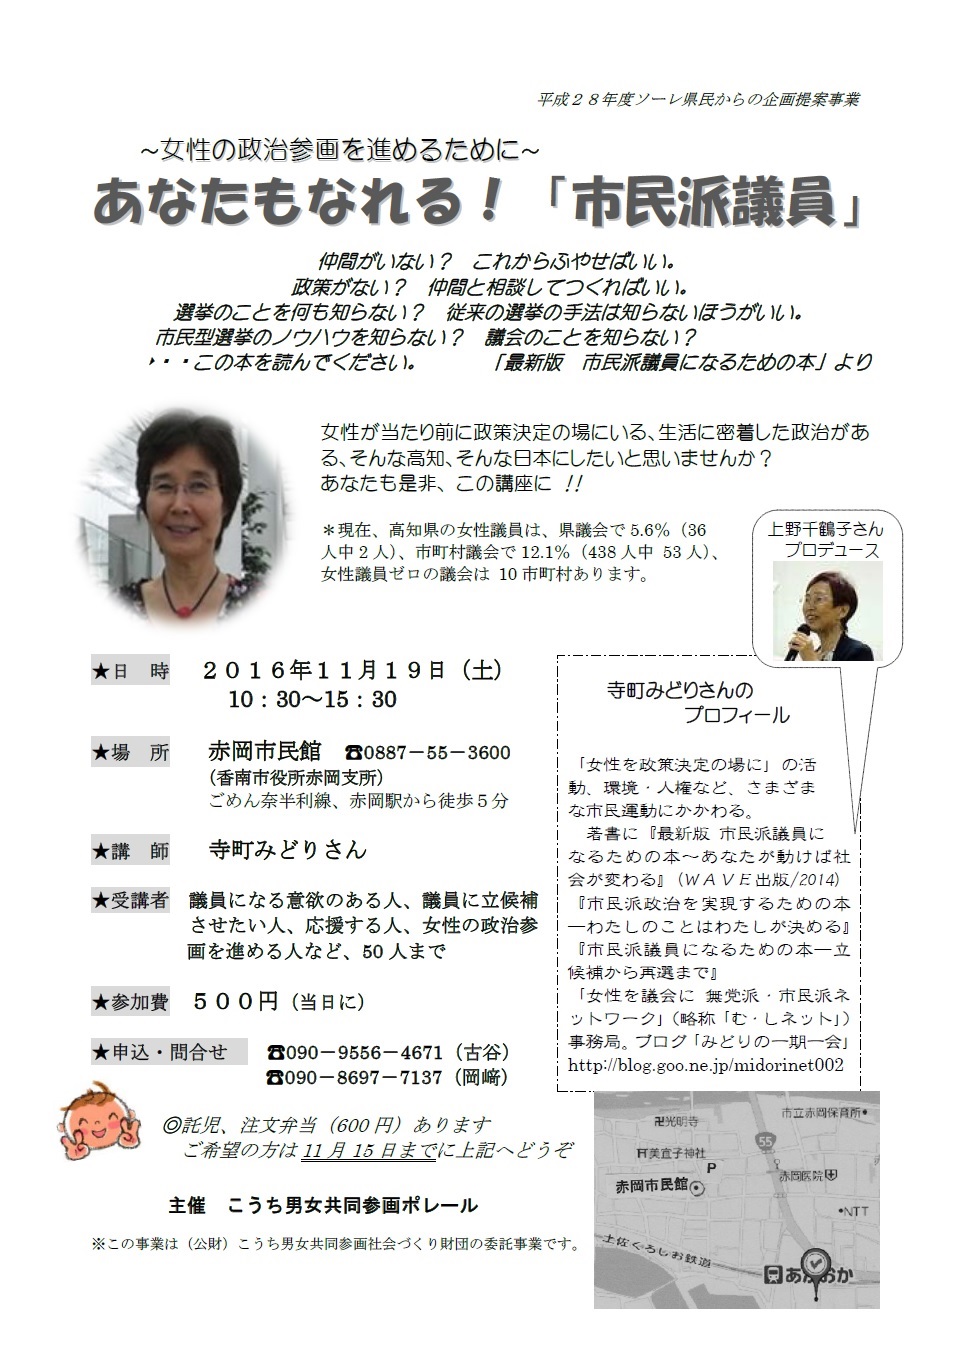 平成２８年度ソーレ県民からの企画提案事業
~女性の政治参画を進めるために~
あなたもなれる！「市民派議員」
仲間がいない？　これからふやせばいい。
政策がない？　仲間と相談してつくればいい。
選挙のことを何も知らない？　従来の選挙の手法は知らないほうがいい。
市民型選挙のノウハウを知らない？　議会のことを知らない？
・・・この本を読んでください。　「最新版　市民派議員になるための本」より
女性が当たり前に政策決定の場にいる、生活に密着した政治があ
る、そんな高知、そんな日本にしたいと思いませんか？
あなたも是非、この講座に !!
＊現在、高知県の女性議員は、県議会で 5.6%（36
人中 2 人）、市町村議会で 12.1%（438 人中 53 人）、
女性議員ゼロの議会は 10 市町村あります。
上野千鶴子さん
プロデュース
★日　時　２０１６年１１月１９日（土）
10：30～15：30
★場　所　赤岡市民館　☎0887－55－3600
（香南市役所赤岡支所）
ごめん奈半利線、赤岡駅から徒歩５分
★講　師　寺町みどりさん
★受講者　議員になる意欲のある人、議員に立候補
させたい人、応援する人、女性の政治参
画を進める人など、50 人まで
★参加費　５００円（当日に）
★申込・問合せ　☎090－9556－4671（古谷）
☎090－8697－7137（岡﨑）
◎託児、注文弁当（600 円）あります
ご希望の方は 11 月 15 日までに上記へどうぞ
主催　こうち男女共同参画ポレール
※この事業は（公財）こうち男女共同参画社会づくり財団の委託事業です。
寺町みどりさんの
プロフィール
「女性を政策決定の場に」の活
動、環境・人権など、さまざま
な市民運動にかかわる。
著書に『最新版 市民派議員に
なるための本～あなたが動けば社
会が変わる』（ＷＡＶＥ出版/2014）
『市民派政治を実現するための本
―わたしのことはわたしが決める』
『市民派議員になるための本―立
候補から再選まで』
「女性を議会に 無党派・市民派ネ
ットワーク」（略称「む・しネット」）
事務局。ブログ「みどりの一期一会」
http://blog.goo.ne.jp/midorinet002
市立赤岡保育所
卍光明寺
55
美宜子神社
P
赤岡医院
赤岡市民館
NTT
土佐くろしお鉄道
あかおか